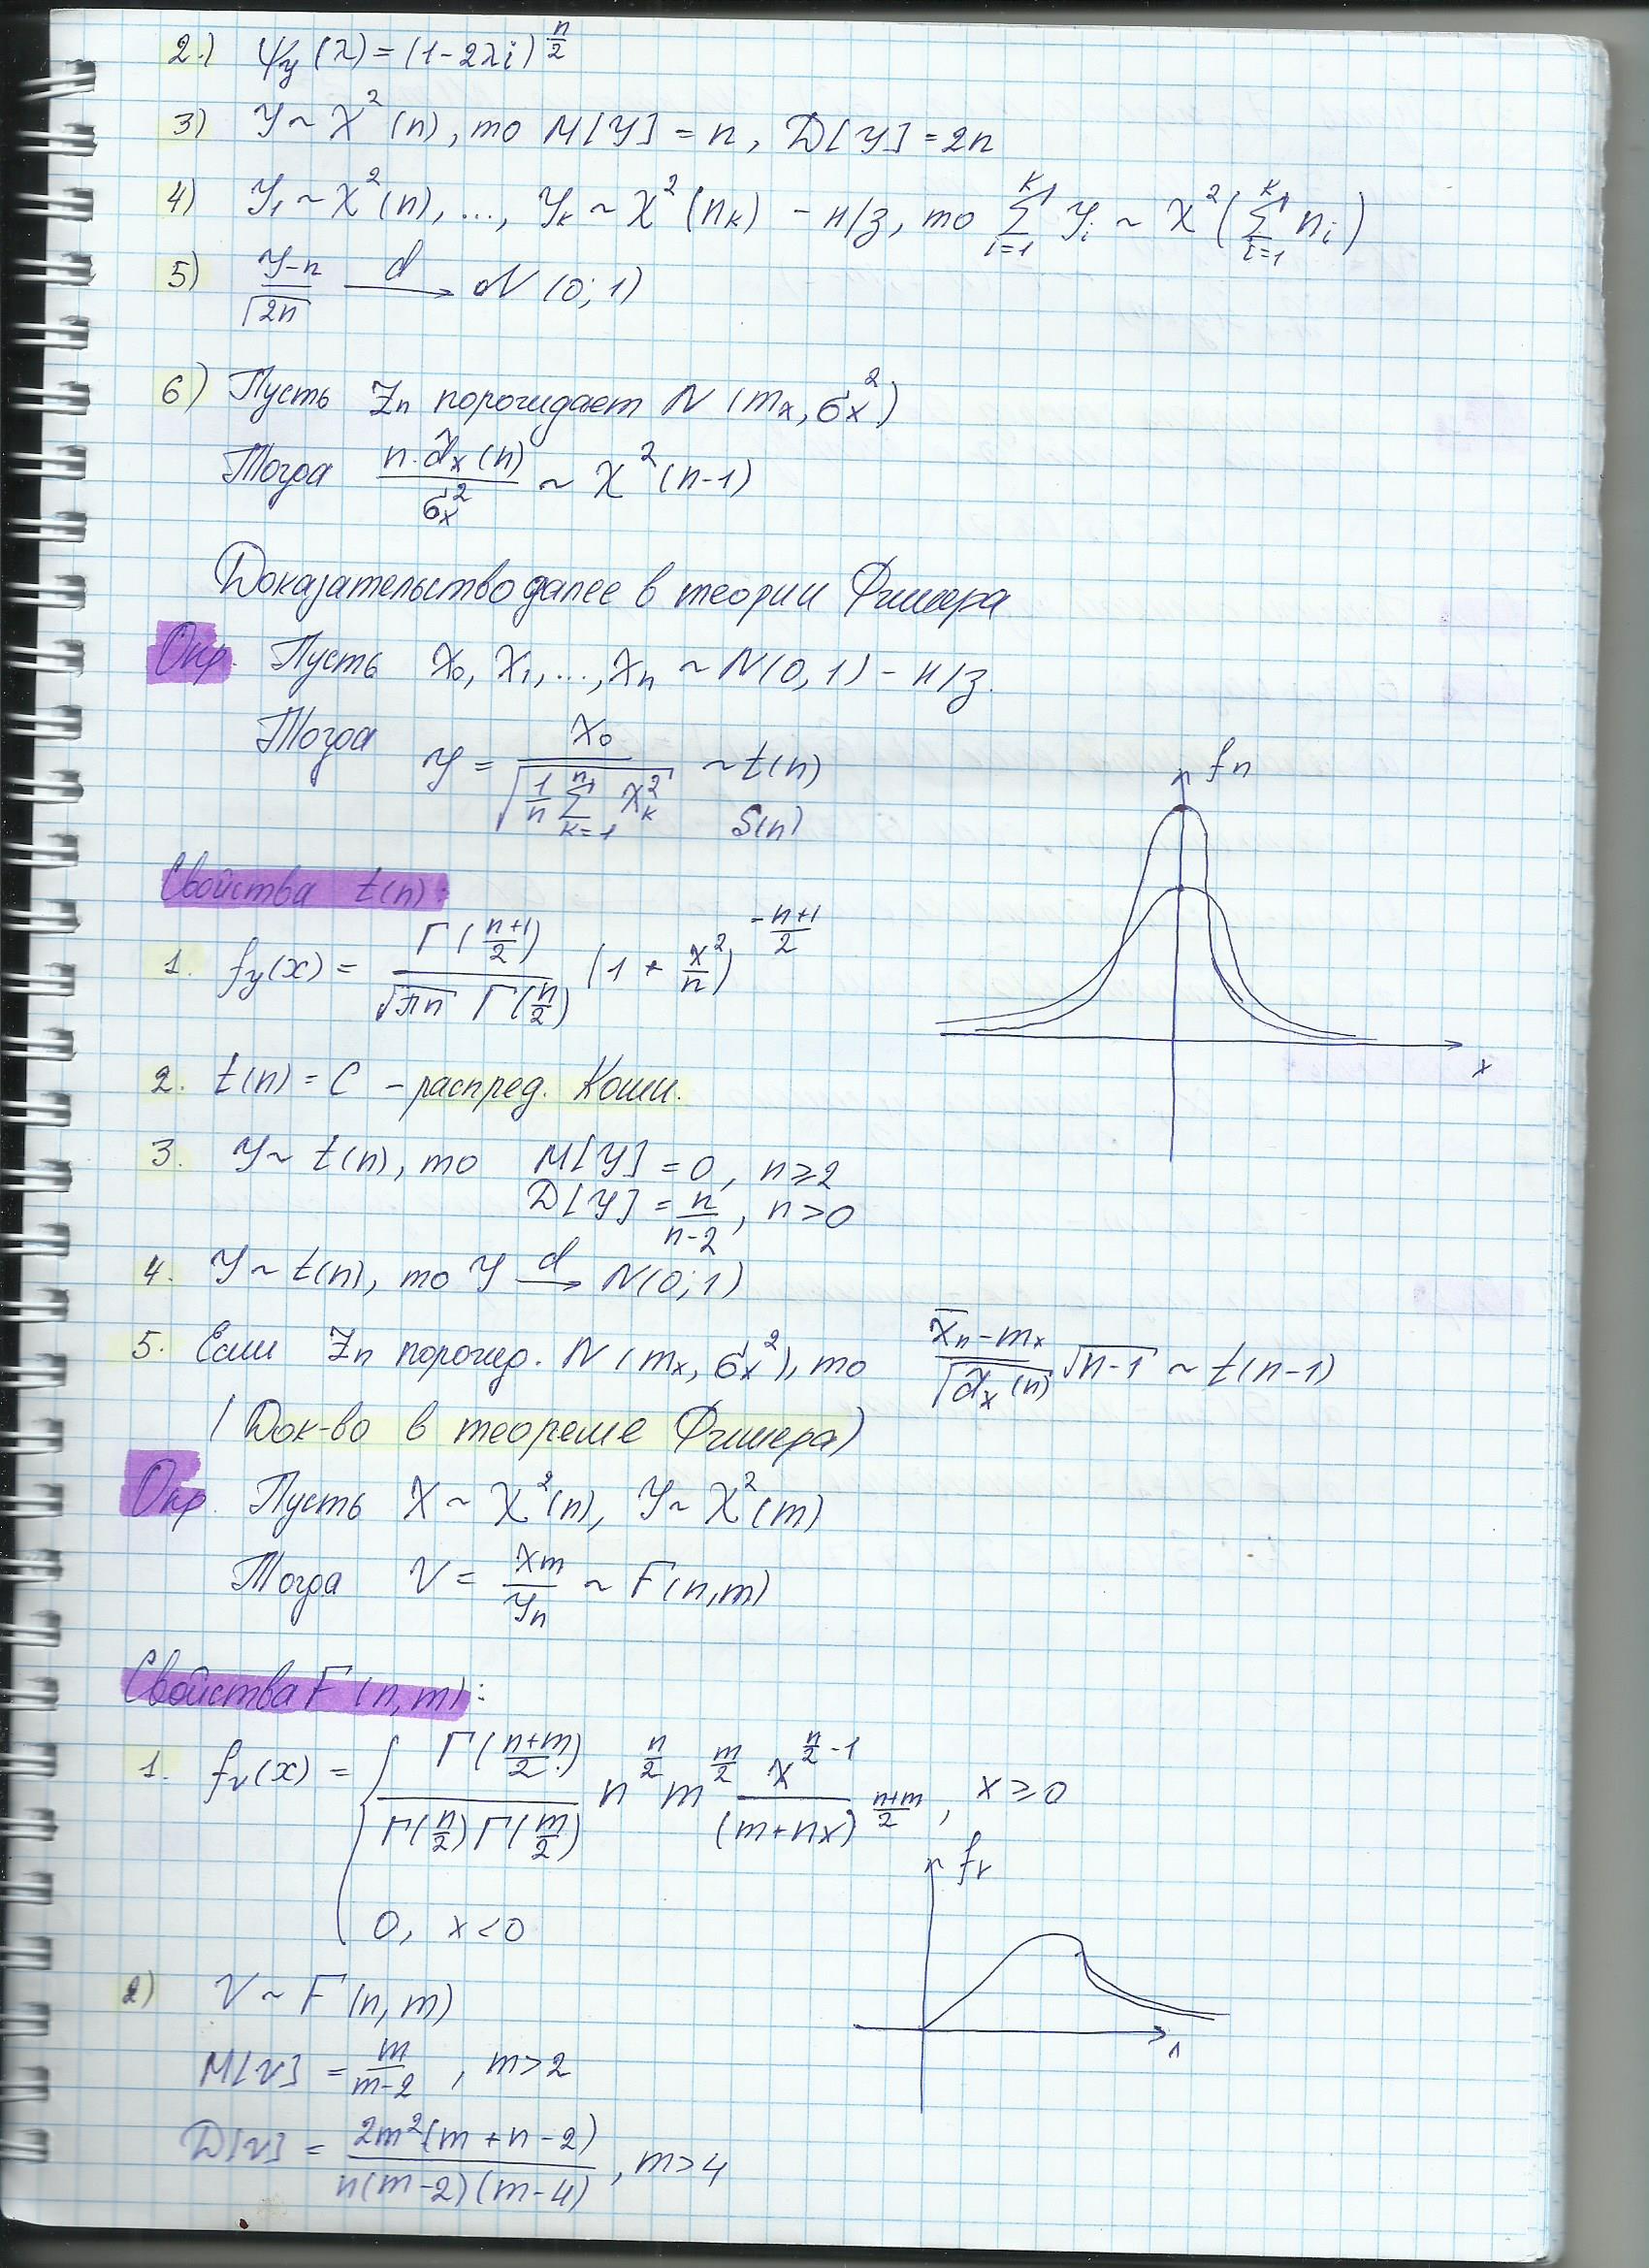 2.) ψ_y(λ) = (1-2λi)^{n/2}
3) Y ~ χ²(n), то M[Y] = n, D[Y] = 2n
4) Y₁ ~ χ²(n), ..., Y_k ~ χ²(n_k) - н/з, то Σ_{i=1}^{k} Y_i ~ χ²(Σ_{i=1}^{k} n_i)
5) (Y-n)/√(2n) —d→ N(0;1)
6) Пусть Z_n порождает N(m_x, σ_x²)
Тогда n·d̂_x(n)/σ_x² ~ χ²(n-1)
Доказательство далее в теории Фишера
Опр. Пусть X₀, X₁, ..., X_n ~ N(0,1) - н/з.
Тогда Y = X₀/√(1/n Σ_{k=1}^{n} X_k²) ~ t(n)
S(n)
f_n
Свойства t(n):
1. f_y(x) = Γ((n+1)/2)/(√(πn) Γ(n/2)) (1 + x²/n)^{-(n+1)/2}
x
2. t(n) = C - распред. Коши.
3. Y ~ t(n), то M[Y] = 0, n ≥ 2
D[Y] = n/(n-2), n > 0
4. Y ~ t(n), то Y —d→ N(0;1)
5. Если Z_n порожд. N(m_x, σ_x²), то (X̄_n - m_x)/√(d̂_x(n)) √(n-1) ~ t(n-1)
(Док-во в теореме Фишера)
Опр. Пусть X ~ χ²(n), Y ~ χ²(m)
Тогда V = Xm/Yn ~ F(n,m)
Свойства F(n,m):
1. f_v(x) = { Γ((n+m)/2)/(Γ(n/2)Γ(m/2)) n^{n/2} m^{m/2} x^{n/2 -1}/(m+nx)^{(n+m)/2}, x ≥ 0
f_v
0, x < 0
2) V ~ F(n,m)
M[V] = m/(m-2), m > 2
D[V] = 2m²(m+n-2)/(n(m-2)(m-4)), m > 4